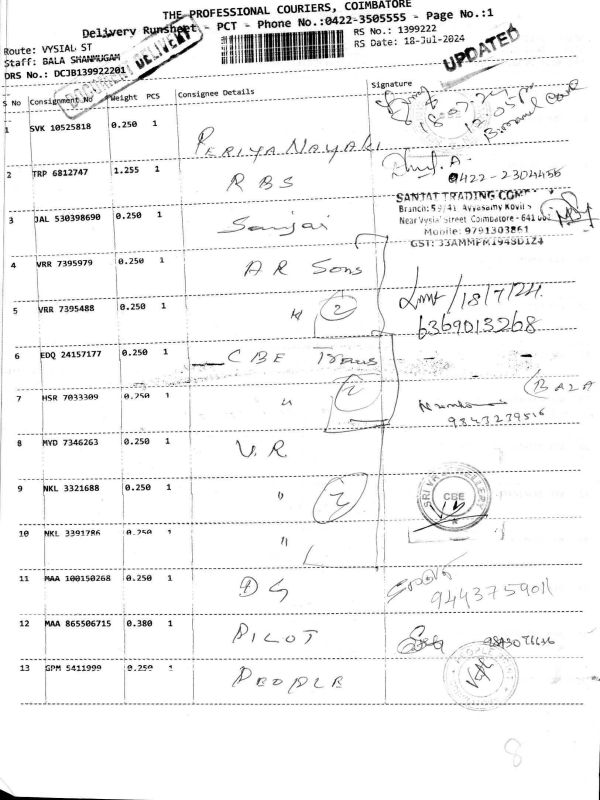 THE PROFESSIONAL COURIERS, COIMBATORE
Delivery Runsheet - PCT - Phone No.:0422-3505555 - Page No.:1
Route: VYSIAL ST
RS No.: 1399222
Staff: BALA SHANMUGAM
RS Date: 18-Jul-2024
DRS No.: DCJB139922201
DOCUMENT DELIVERY
UPDATED
S No Consignment No Weight PCS Consignee Details Signature
1 SVK 10525818 0.250 1 PERIYA NAYAKI
18.07.24
12.05pm
2 TRP 6812747 1.255 1 RBS
0422-2304456
3 JAL 530398690 0.250 1 Sanjai
SANJAI TRADING
Branch: 59/41 Ayyasamy Kovil
Near Vysial Street Coimbatore - 641
Mobile: 9791303861
4 VRR 7395979 0.250 1 A R Sons
18/7/24
5 VRR 7395488 0.250 1 " 2
6369013268
6 EDQ 24157177 0.250 1 CBE Trans
7 HSR 7033309 0.250 1 " 2
BALA
8 MYD 7346263 0.250 1 V.R.
9 NKL 3321688 0.250 1 " 3
CBE
10 NKL 3391786 0.250 1 "
11 MAA 100150268 0.250 1 DG
9443759011
12 MAA 865506715 0.380 1 PILOT
13 GPM 5411999 0.250 1 PEOPLE
8